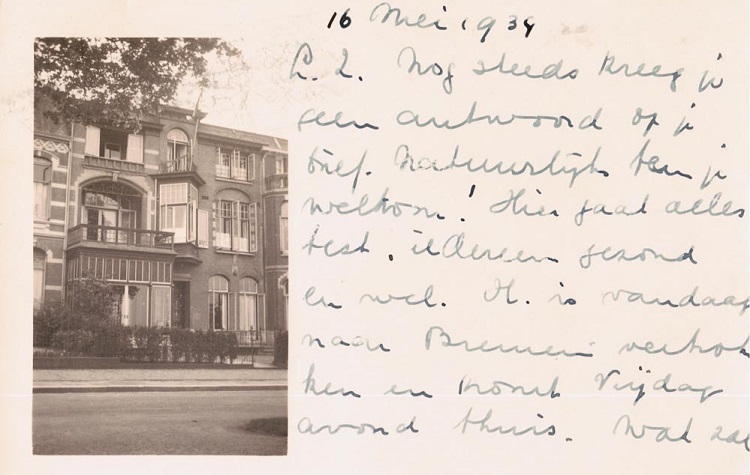 16 Mei 1934
L. L. Nog steeds kreeg je
geen antwoord op je
brief. Natuurlijk ben je
welkom! Hier gaat alles
best, iedereen gezond
en wel. H. is vandaag
naar Bremen vertrok
ken en komt Vrijdag
avond thuis. Wat zal